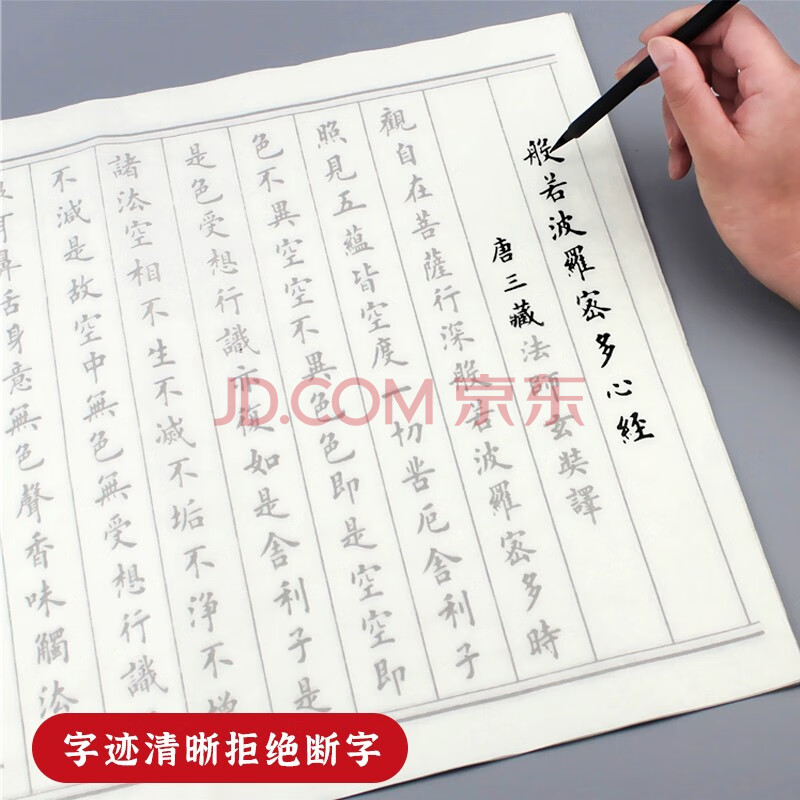 般若波羅密多心經
唐三藏法師玄奘譯
觀自在菩薩行深般若波羅密多時
照見五蘊皆空度一切苦厄舍利子
色不異空空不異色色即是空空即
是色受想行識亦復如是舍利子是
諸法空相不生不滅不垢不淨不增
不減是故空中無色無受想行識
耳鼻舌身意無色聲香味觸法
JD.COM 京东
字迹清晰拒绝断字